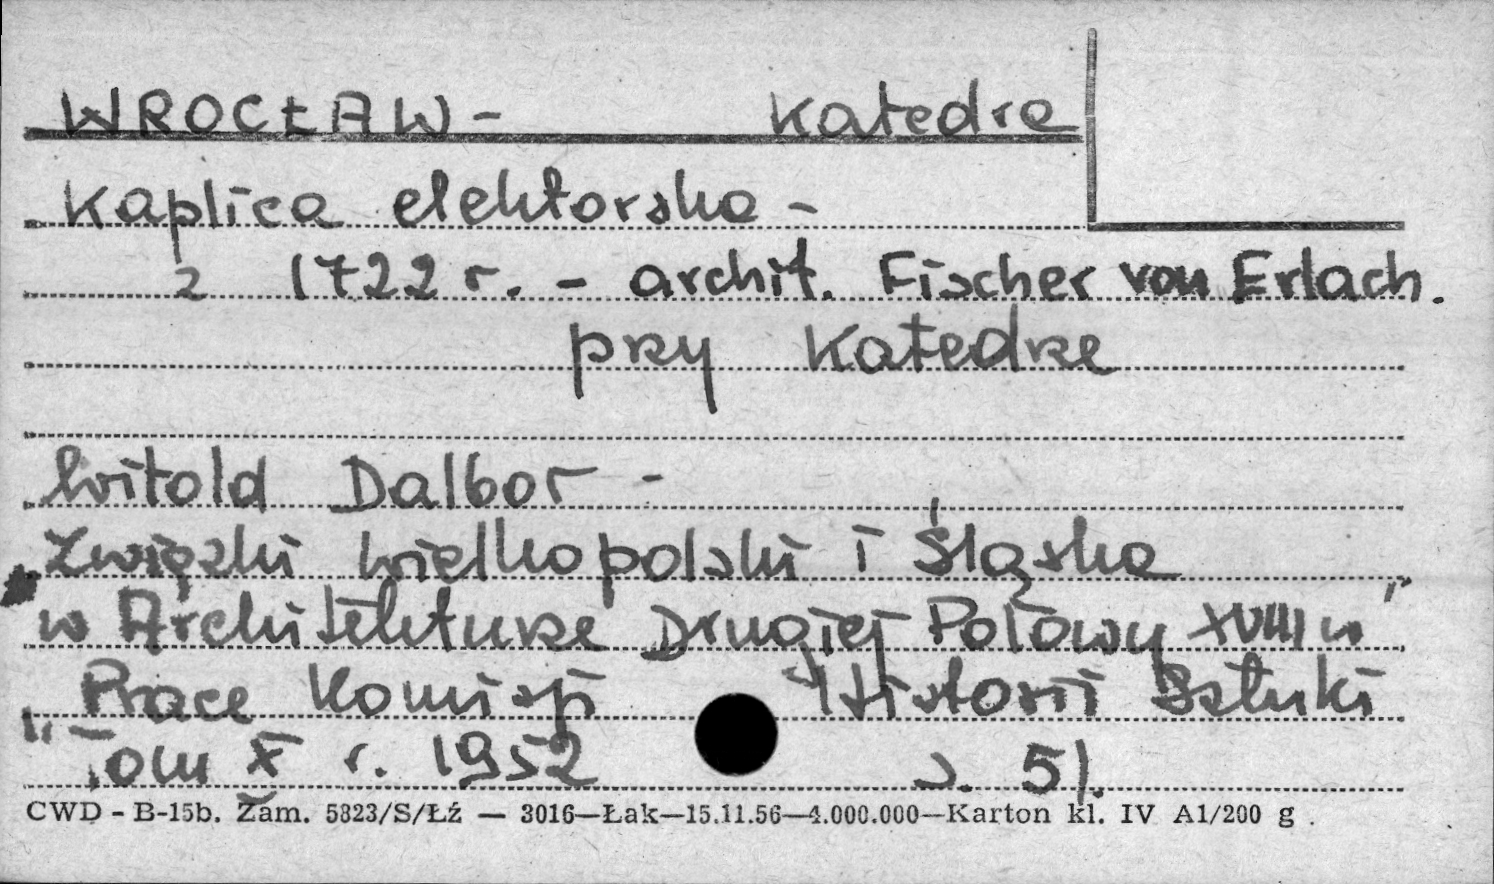 WROCŁAW - Katedra
Kaplica elektorska -
z 1722 r. - archit. Fischer von Erlach.
przy Katedrze
Witold Dalbor -
„Związki wielkopolski i Śląska
w Architekturze Drugiej Połowy XVIII w"
Prace Komisji Historii Sztuki
" Tom X r. 1952 s. 51.
CWD - B-15b. Zam. 5823/S/Łź — 3016—Łak—15.11.56—4.000.000—Karton kl. IV A1/200 g.